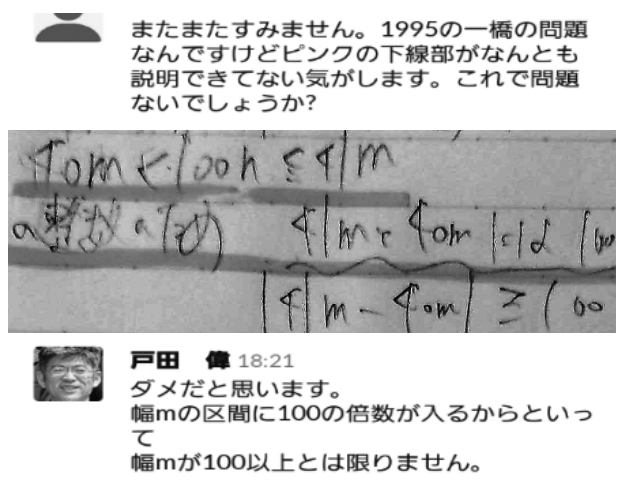 またまたすみません。1995の一橋の問題
なんですけどピンクの下線部がなんとも
説明できてない気がします。これで問題
ないでしょうか?
40m < 100n ≤ 41m
の整数のため 41mと40mには100
|41m - 40m| ≥ 100
戸田 偉 18:21
ダメだと思います。
幅mの区間に100の倍数が入るからといっ
て
幅mが100以上とは限りません。